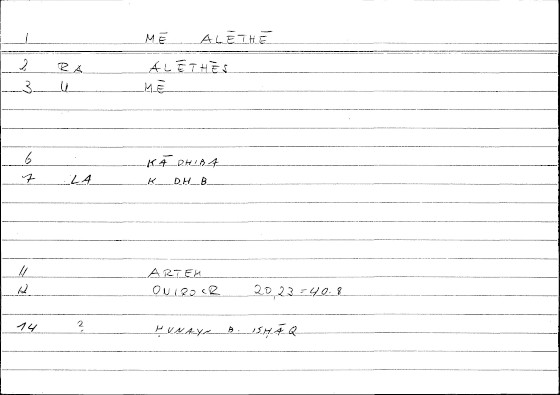 1 MĒ ALĒTHĒ
2 RA ALĒTHĒS
3 U MĒ
6 KĀDHIBA
7 LA K DH B
11 ARTEM
12 20,23 = 40.8
14 ? ḤUNAYN B. ISḤĀQ